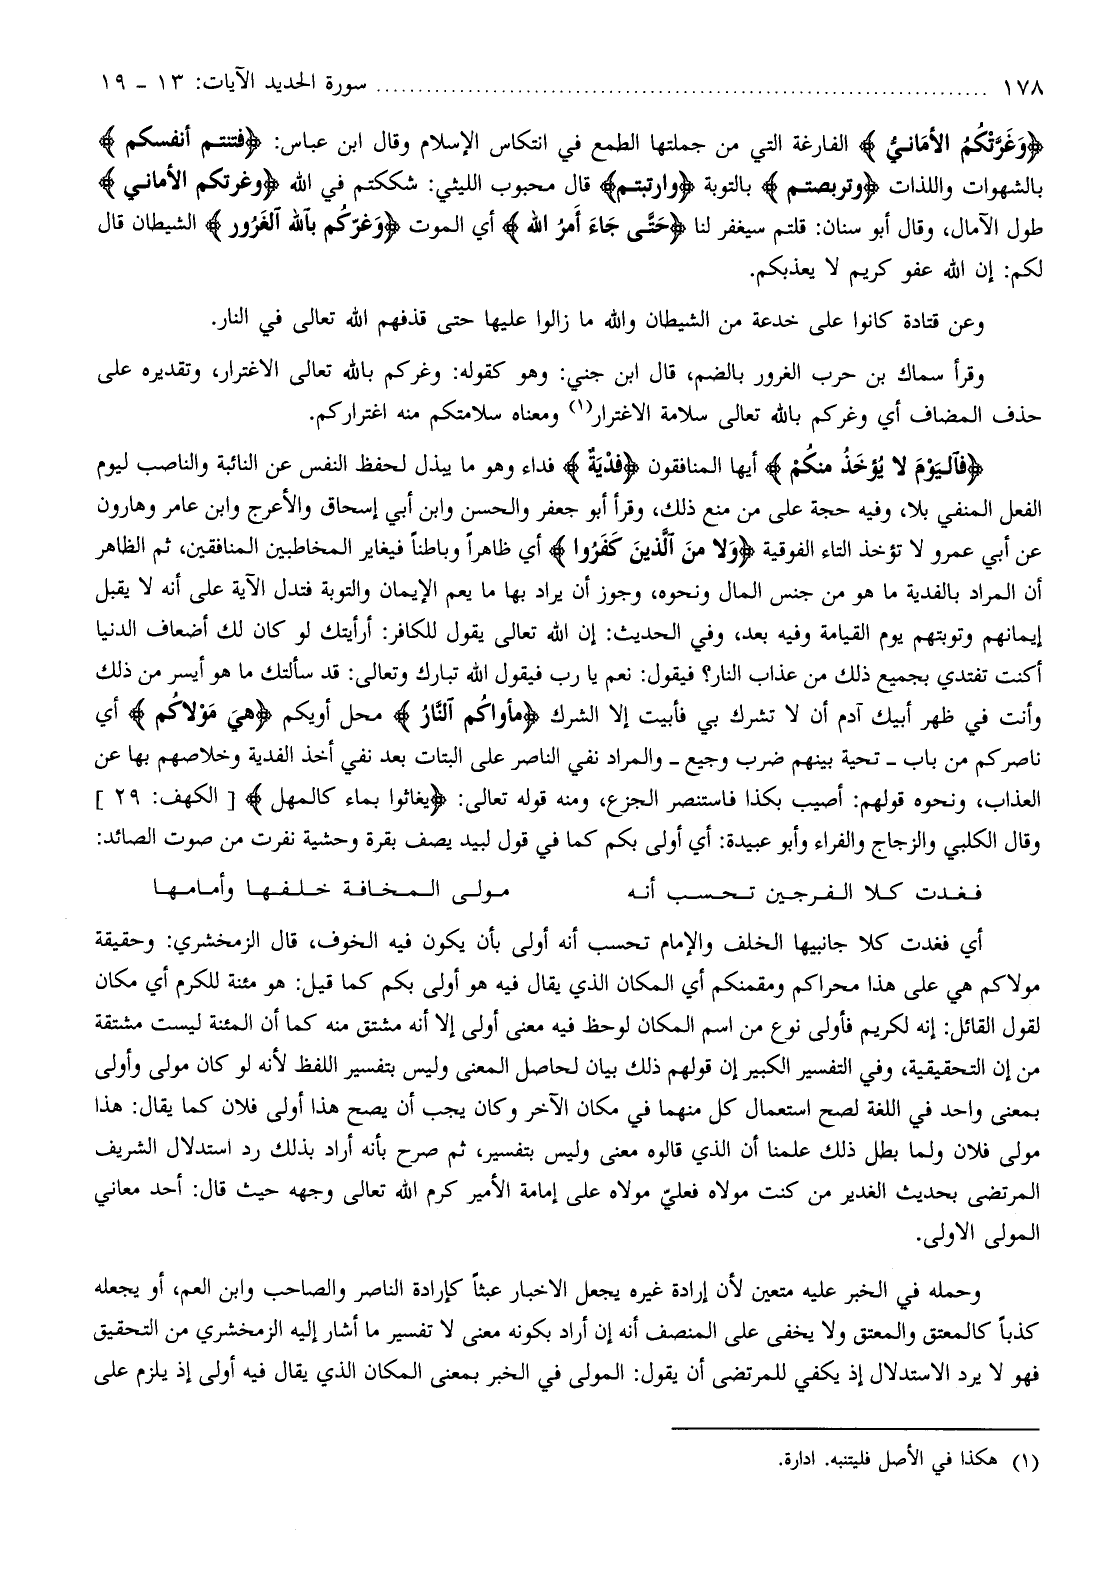 ١٧٨ ........................................................................ سورة الحديد الآيات: ١٣ - ١٩
﴿وَغَرَّتْكُمُ الأَمَانيُّ﴾ الفارغة التي من جملتها الطمع في انتكاس الإسلام وقال ابن عباس: ﴿فتنتم أنفسكم﴾
بالشهوات واللذات ﴿وتربصتم﴾ بالتوبة ﴿وارتبتم﴾ قال محبوب الليثي: شككتم في الله ﴿وغرتكم الأماني﴾
طول الآمال، وقال أبو سنان: قلتم سيغفر لنا ﴿حَتَّى جَاءَ أَمرُ الله﴾ أي الموت ﴿وَغرّكم بٱلله ٱلغَرُور﴾ الشيطان قال
لكم: إن الله عفو كريم لا يعذبكم.
وعن قتادة كانوا على خدعة من الشيطان والله ما زالوا عليها حتى قذفهم الله تعالى في النار.
وقرأ سماك بن حرب الغرور بالضم، قال ابن جني: وهو كقوله: وغركم بالله تعالى الاغترار، وتقديره على
حذف المضاف أي وغركم بالله تعالى سلامة الاغترار(١) ومعناه سلامتكم منه اغتراركم.
﴿فَٱليَوْمَ لا يُؤخَذُ منكُمْ﴾ أيها المنافقون ﴿فدْيَةٌ﴾ فداء وهو ما يبذل لحفظ النفس عن النائبة والناصب ليوم
الفعل المنفي بلا، وفيه حجة على من منع ذلك، وقرأ أبو جعفر والحسن وابن أبي إسحاق والأعرج وابن عامر وهارون
عن أبي عمرو لا تؤخذ التاء الفوقية ﴿وَلا منَ ٱلَّذينَ كَفَرُوا﴾ أي ظاهراً وباطناً فيغاير المخاطبين المنافقين، ثم الظاهر
أن المراد بالفدية ما هو من جنس المال ونحوه، وجوز أن يراد بها ما يعم الإيمان والتوبة فتدل الآية على أنه لا يقبل
إيمانهم وتوبتهم يوم القيامة وفيه بعد، وفي الحديث: إن الله تعالى يقول للكافر: أرأيتك لو كان لك أضعاف الدنيا
أكنت تفتدي بجميع ذلك من عذاب النار؟ فيقول: نعم يا رب فيقول الله تبارك وتعالى: قد سألتك ما هو أيسر من ذلك
وأنت في ظهر أبيك آدم أن لا تشرك بي فأبيت إلا الشرك ﴿مأواكُم ٱلنَّارُ﴾ محل أويكم ﴿هيَ مَوْلاكُم﴾ أي
ناصركم من باب ـ تحية بينهم ضرب وجيع ـ والمراد نفي الناصر على البتات بعد نفي أخذ الفدية وخلاصهم بها عن
العذاب، ونحوه قولهم: أصيب بكذا فاستنصر الجزع، ومنه قوله تعالى: ﴿يغاثوا بماء كالمهل﴾ [ الكهف: ٢٩ ]
وقال الكلبي والزجاج والفراء وأبو عبيدة: أي أولى بكم كما في قول لبيد يصف بقرة وحشية نفرت من صوت الصائد:
فـغـدت كـلا الـفـرجـين تـحـسـب أنـه مـولـى الـمـخـافـة خـلـفـهـا وأمـامـهـا
أي فغدت كلا جانبيها الخلف والإمام تحسب أنه أولى بأن يكون فيه الخوف، قال الزمخشري: وحقيقة
مولاكم هي على هذا محراكم ومقمنكم أي المكان الذي يقال فيه هو أولى بكم كما قيل: هو مئنة للكرم أي مكان
لقول القائل: إنه لكريم فأولى نوع من اسم المكان لوحظ فيه معنى أولى إلا أنه مشتق منه كما أن المئنة ليست مشتقة
من إن التحقيقية، وفي التفسير الكبير إن قولهم ذلك بيان لحاصل المعنى وليس بتفسير اللفظ لأنه لو كان مولى وأولى
بمعنى واحد في اللغة لصح استعمال كل منهما في مكان الآخر وكان يجب أن يصح هذا أولى فلان كما يقال: هذا
مولى فلان ولما بطل ذلك علمنا أن الذي قالوه معنى وليس بتفسير، ثم صرح بأنه أراد بذلك رد استدلال الشريف
المرتضى بحديث الغدير من كنت مولاه فعليّ مولاه على إمامة الأمير كرم الله تعالى وجهه حيث قال: أحد معاني
المولى الاولى.
وحمله في الخبر عليه متعين لأن إرادة غيره يجعل الاخبار عبثاً كإرادة الناصر والصاحب وابن العم، أو يجعله
كذباً كالمعتق والمعتق ولا يخفى على المنصف أنه إن أراد بكونه معنى لا تفسير ما أشار إليه الزمخشري من التحقيق
فهو لا يرد الاستدلال إذ يكفي للمرتضى أن يقول: المولى في الخبر بمعنى المكان الذي يقال فيه أولى إذ يلزم على
(١) هكذا في الأصل فليتنبه. ادارة.